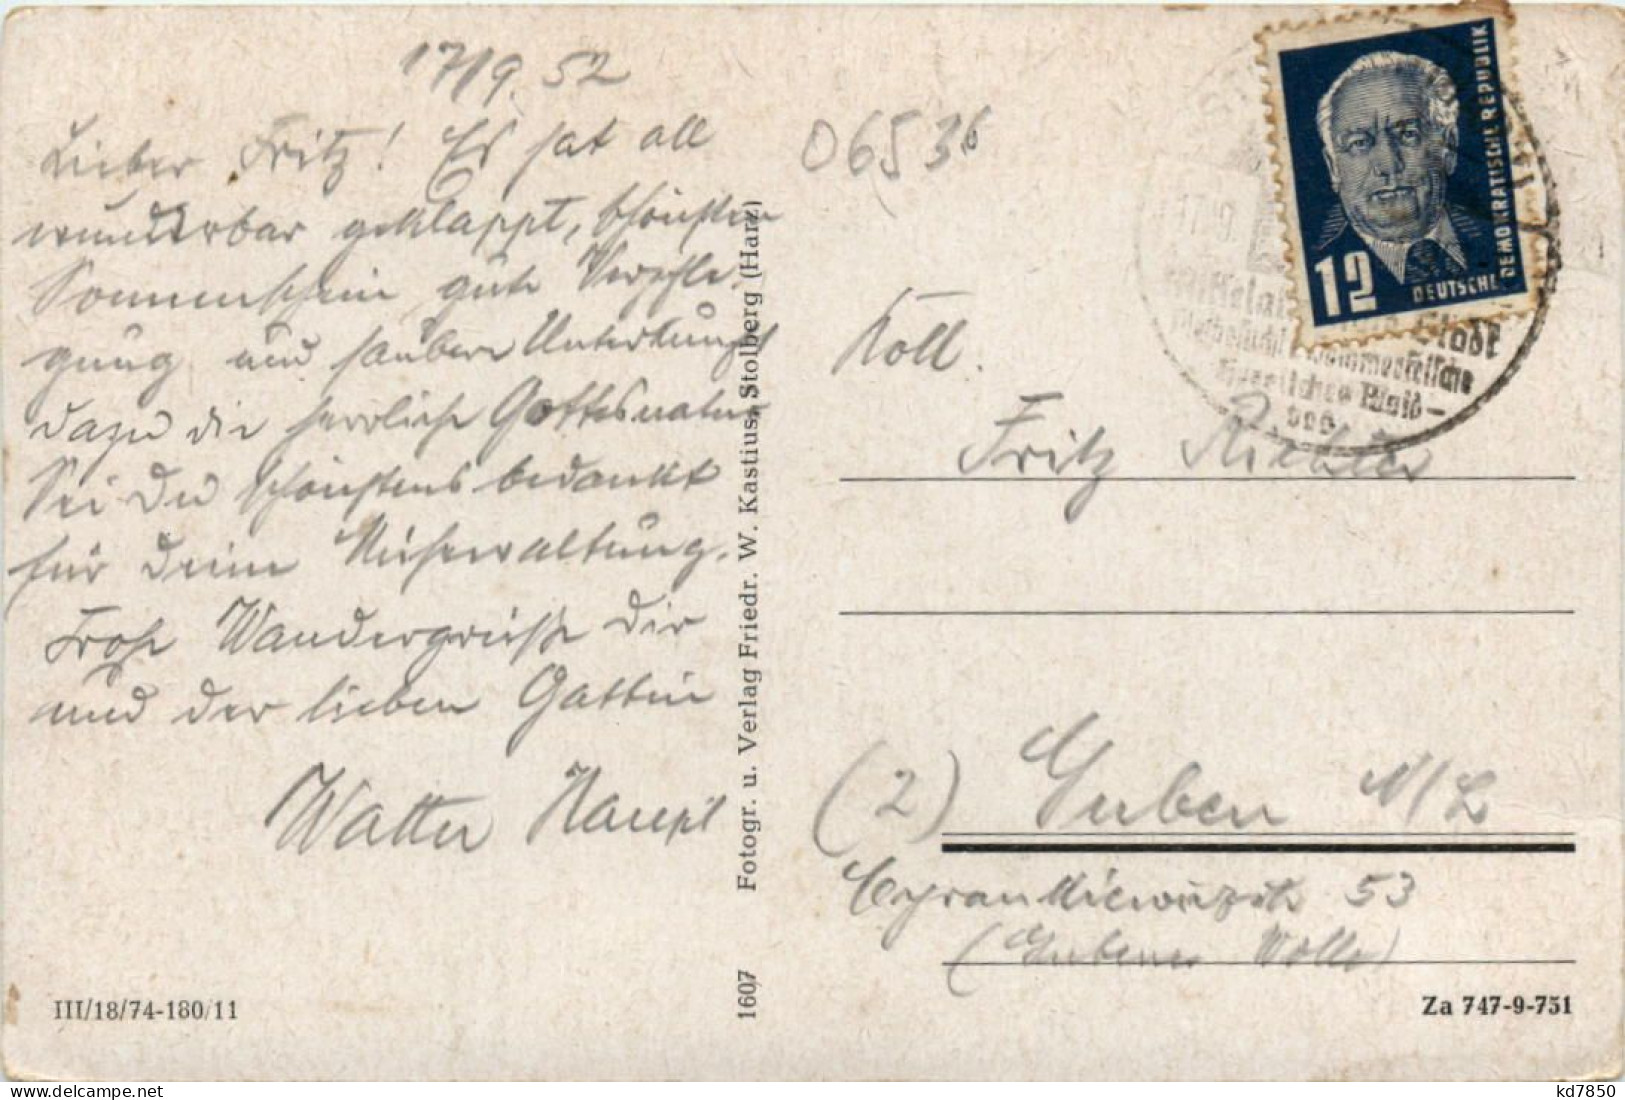 17/9. 52
Lieber Fritz! Es hat all
wunderbar geklappt, schönsten
Sonnenschein gute Verpfle-
gung und saubere Unterkunft
dazu die herrliche Gottesnatur
Sei Du schönstens bedankt
für deine
Frohe Wandergrüße dir
und der lieben Gattin
Walter Haupt
III/18/74-180/11
1607 Fotogr. u. Verlag Friedr. W. Kastius, Stolberg (Harz)
06536
12
DEUTSCHE DEMOKRATISCHE REPUBLIK
Koll.
Fritz Richter
(2) Guben N/L
53
(Gubener Wolle)
Za 747-9-751
kd7850